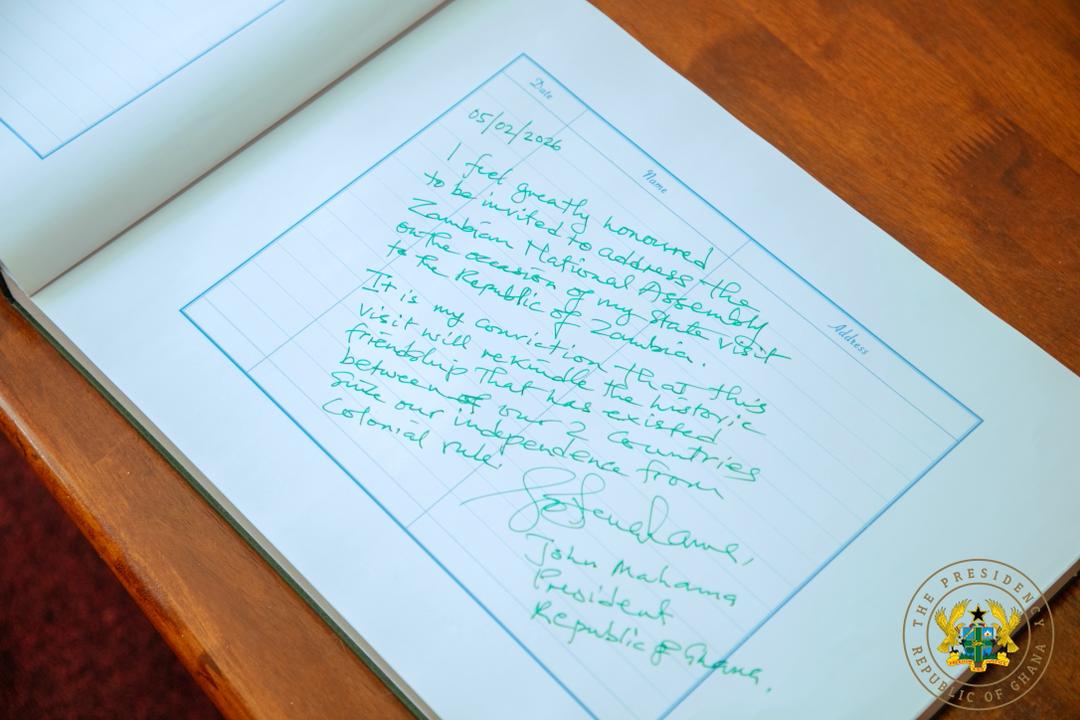 Date
Name
Address
05/02/2026
I feel greatly honoured
to be invited to address the
Zambian National Assembly
on the occasion of my state visit
to the Republic of Zambia.
It is my conviction that this
visit will rekindle the historic
friendship that has existed
between our 2 countries
since our independence from
colonial rule.
John Mahama
President
Republic of Ghana.
THE PRESIDENCY
REPUBLIC OF GHANA